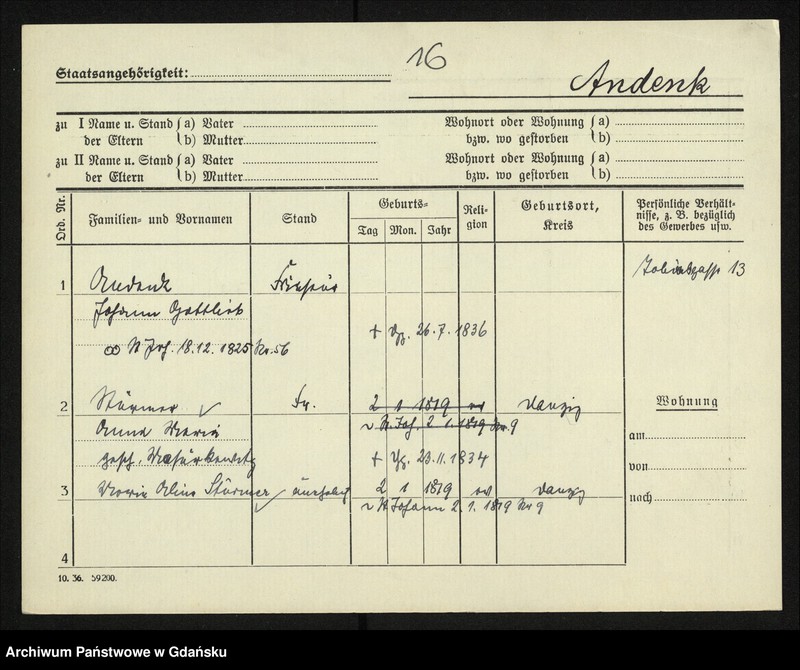 16
Staatsangehörigkeit:
Andenk
zu I Name u. Stand a) Vater
der Eltern b) Mutter
Wohnort oder Wohnung a)
bzw. wo gestorben b)
zu II Name u. Stand a) Vater
der Eltern b) Mutter
Wohnort oder Wohnung a)
bzw. wo gestorben b)
Ord. Nr.
Familien- und Vornamen
Stand
Geburts-
Tag Mon. Jahr
Reli-
gion
Geburtsort,
Kreis
Persönliche Verhält-
nisse, z. B. bezüglich
des Gewerbes usw.
1 Andenk 13
Johann Gottlieb
+ 26.7.1836
∞ St Joh. 18.12.1825 Nr. 56
2 Stürmer Fr. 2 1 1819 ev Danzig
Anna Maria ~ St. Joh. 2 1. 1819 Nr 9
gesch. + 23.11.1834
3 Maria Stürmer 2 1 1819 ev Danzig
~ St Johann 2. 1. 1819 Nr 9
4
Wohnung
am
von
nach
10. 36. 59200.
Archiwum Państwowe w Gdańsku